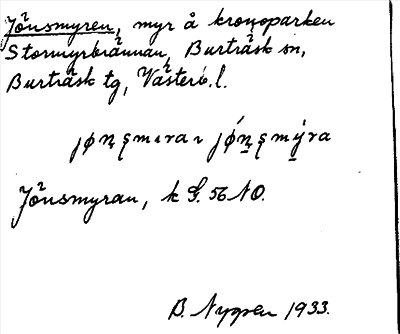 Jönsmyren, myr å kronoparken
Stormyrbrännan, Burträsk sn,
Burträsk tg, Västerb. l.
Jönsmyran, k G. 56 NO.
B. Nygren 1933.